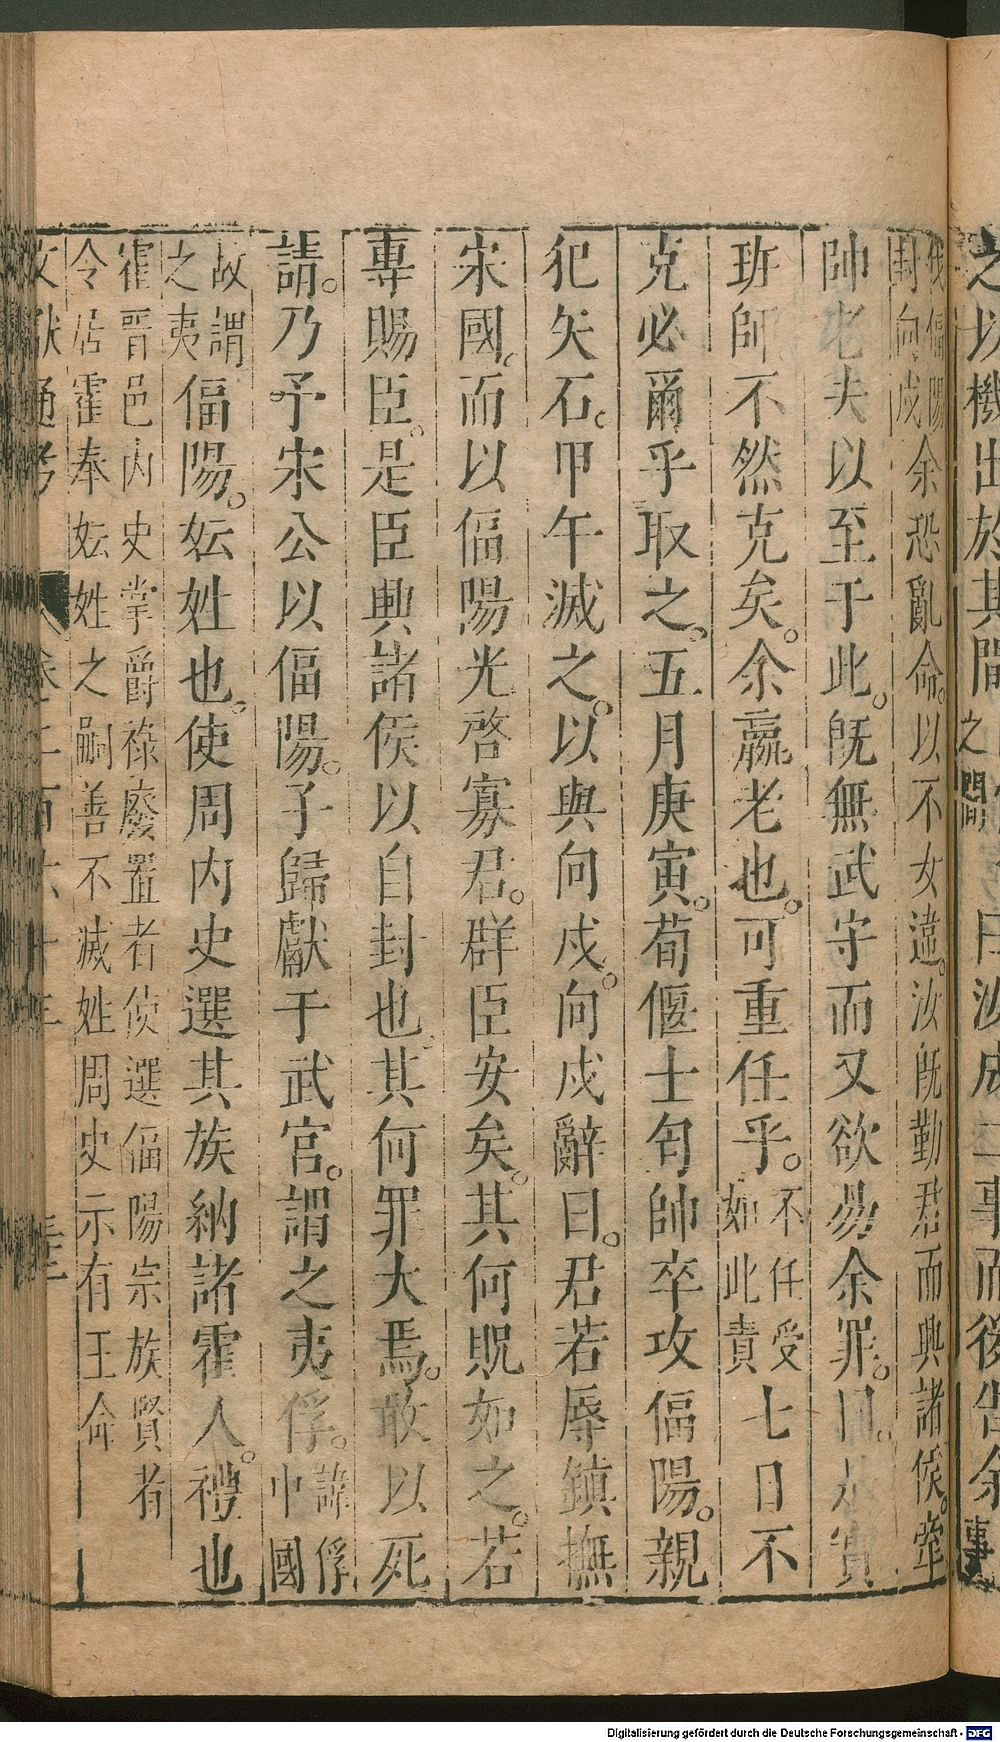 之以機出於其間 之間 曰汝成二事而後告余 事
伐偪陽封向戌 余恐亂命。以不女違。汝旣勤君而興諸侯。牽
帥老夫以至于此。旣無武守而又欲易余罪。曰。是實
班師。不然克矣。余羸老也。可重任乎。不任受如此責 七日不
克必爾乎取之。五月庚寅。荀偃士匄帥卒攻偪陽。親
犯矢石。甲午滅之。以與向戌。向戌辭曰。君若辱鎮撫
宋國。而以偪陽光啓寡君。群臣安矣。其何貺如之。若
專賜臣。是臣興諸侯以自封也。其何罪大焉。敢以死
請。乃予宋公以偪陽。子歸獻于武宮。謂之夷俘。諱俘中國
故謂之夷 偪陽。妘姓也。使周内史選其族納諸霍人。禮也
霍晋邑内史掌爵祿廢置者使選偪陽宗族賢者
令居霍奉妘姓之嗣善不滅姓周史示有王命
文獻通考 卷二百六十